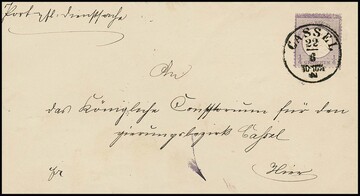 Port. pfl. Dienstsache
CASSEL
22
6
An
das Königliche Consistorium für den
gierungsbezirk Cassel
Hier